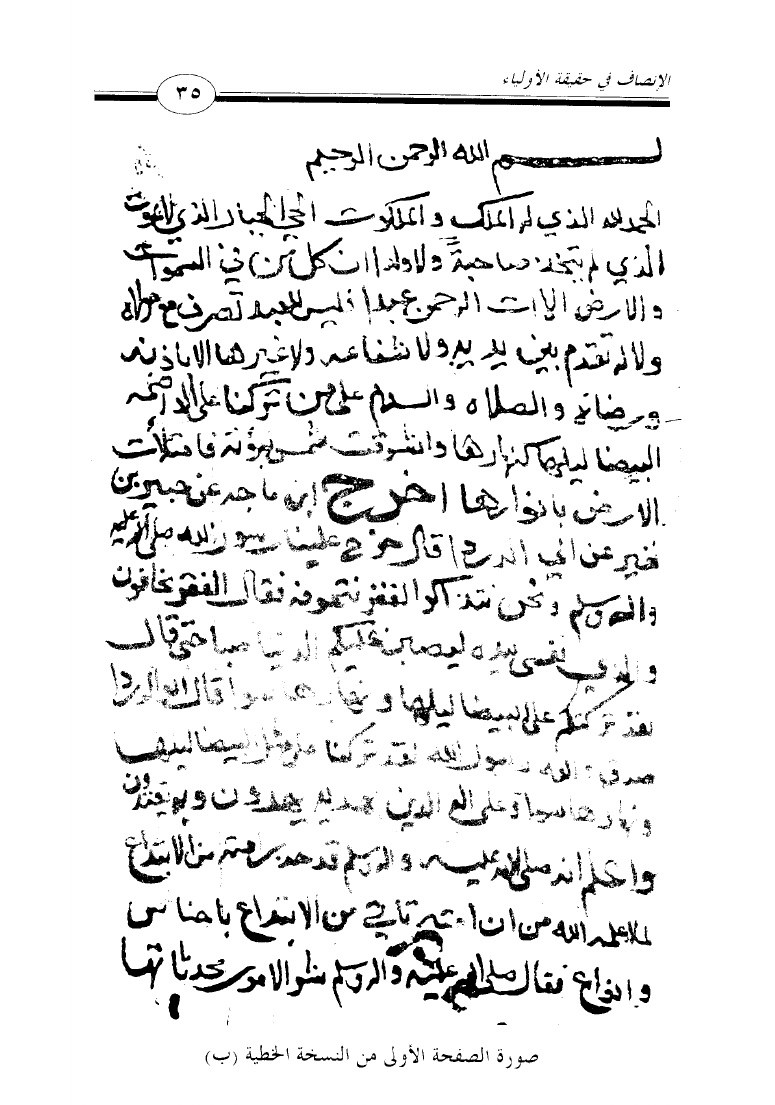 الإنصاف في حقيقة الأولياء
٣٥
بسم الله الرحمن الرحيم
الحمد لله الذي له الملك والملكوت الحي الجبار الذي لا يموت
الذي لم يتخذ صاحبة ولا ولدا ان كل من في السموات
والارض الا ات الرحمن عبدا فليس للعبد تصرف مع مولاه
ولا له تقدم بين يديه ولا شفاعه ولا غيرها الا باذنه
ورضائه والصلاه والسلام على من تركنا على الواضحه
البيضا ليلها كنهارها واشرقت شمس نبوته فامتلأت
الارض بانوارها اخرج ابن ماجه عن جبير بن
نفير عن ابي الدردا قال خرج علينا رسول الله صلى الله عليه
واله وسلم ونحن نتذاكر الفقر ونتخوفه فقال الفقر تخافون
والذي نفسي بيده ليصبن عليكم الدنيا صبا حتى قال
لقد تركتكم على البيضا ليلها ونهارها سوا قال ابو الدردا
صدق الله ورسول الله لقد تركنا على مثل البيضا ليلها
ونهارها سوا وعلى الذين بهديه يهدون وبه يقتدون
واعلم انه صلى الله عليه واله وسلم قد حذر امته من الابتداع
لما علمه الله من ان امته تاتي من الابتداع باجناس
وانواع فقال صلى الله عليه واله وسلم شر الامور محدثاتها
صورة الصفحة الأولى من النسخة الخطية (ب)